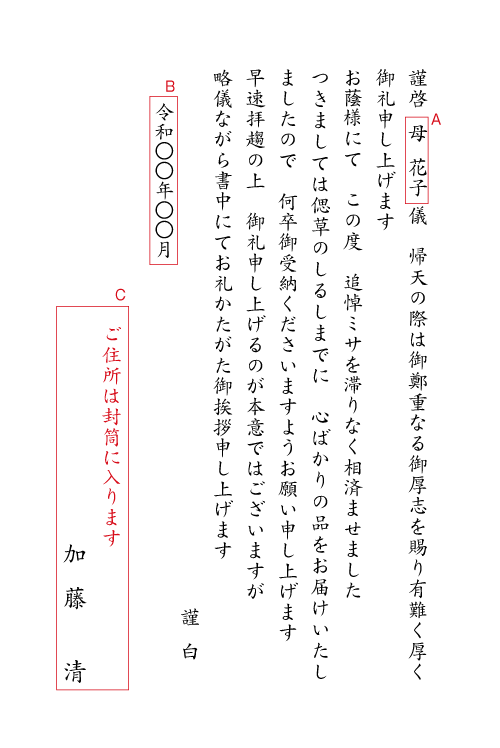 謹啓 母 花子 儀 帰天の際は御鄭重なる御厚志を賜り有難く厚く
A
御礼申し上げます
お蔭様にて この度 追悼ミサを滞りなく相済ませました
つきましては偲草のしるしまでに 心ばかりの品をお届けいたし
ましたので 何卒御受納くださいますようお願い申し上げます
早速拝趨の上 御礼申し上げるのが本意ではございますが
略儀ながら書中にてお礼かたがた御挨拶申し上げます
謹白
B
令和〇〇年〇〇月
C
ご住所は封筒に入ります
加藤 清